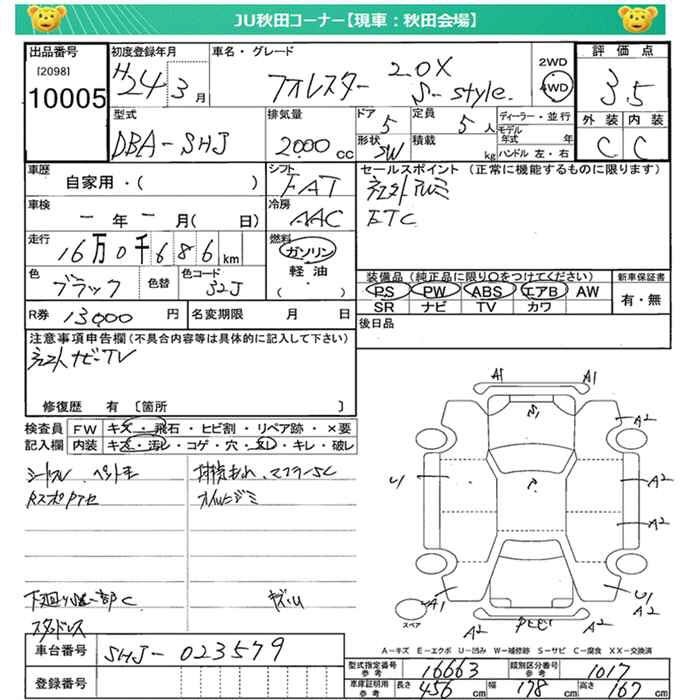 JU秋田コーナー【現車：秋田会場】
出品番号
[2098]
10005
初度登録年月
H24 3月
車名・グレード
フォレスター 2.0X S-style.
2WD
4WD
評価点
3.5
外装 内装
C C
型式
DBA-SHJ
排気量
2000cc
ドア
5
定員
5人
形状
SW
積載
kg
ディーラー・並行
モデル年式 年
ハンドル 左・右
車歴
自家用・( )
シフト
FAT
セールスポイント (正常に機能するものに限ります)
社外アルミ
ETC
車検
一年一月( 日)
冷房
AAC
走行
16万0千686km
燃料
ガソリン
軽油
( )
色
ブラック
色替
色コード
32J
装備品(純正品に限り○をつけてください)
PS PW ABS エアB AW
SR ナビ TV カワ
新車保証書
有・無
R券 13000円
名変期限 月 日
後日品
注意事項申告欄(不具合内容等は具体的に記入して下さい)
社外ナビ-TV
修復歴 有 〔箇所 〕
検査員
記入欄
FW キズ・飛石・ヒビ割・リペア跡・×要
内装 キズ・汚レ・コゲ・穴・スレ・キレ・破レ
下廻り
スタッドレス
キズ・U
A1
A1
S1
A2
U1
A2
A2
A1
A2
U1
A2
A2
スペア
A-キズ E-エクボ U-凹み W-補修跡 S-サビ C-腐食 XX-交換済
車台番号
SHJ-023579
登録番号
型式指定番号
参考
16663
類別区分番号
参考
1017
車庫証明用
参考
長さ 456cm
幅 178cm
高さ 167cm